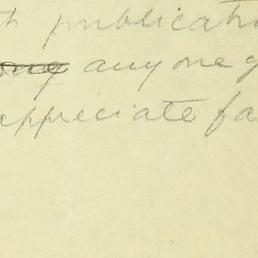 th publicati
any one g
appreciate fa